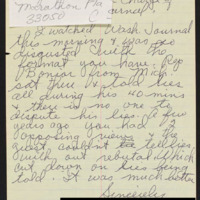 Marathon Fla
33050
Journal
I watched Wash. Journal
this morning & was so
disgusted with the
format you have. Rep
Bonior from Mich
sat there & told lies
all during his 40 mins
& there is no one to
dispute his lies. A few
years ago you had
opposing views & the
guest couldn't tell lies
with out rebutal which
cut down on lies being
told - it was much better
Sincerely